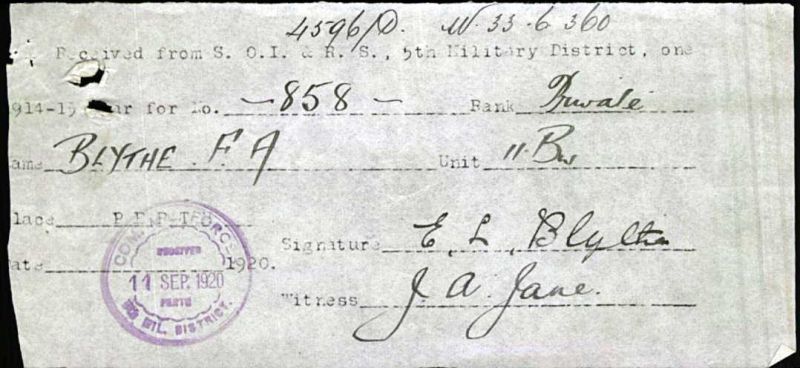 4596/D. N. 33.6.360
Received from S. O.I. & R. S., 5th Military District, one
914-15 ar for No. -858- Rank Private
ame BLYTHE F A Unit 11 Bn
lace PERTH
Signature E. L. Blythe
ate 1920.
Witness J. A. Jane.
RECEIVED
11 SEP. 1920
PERTH
MIL. DISTRICT.